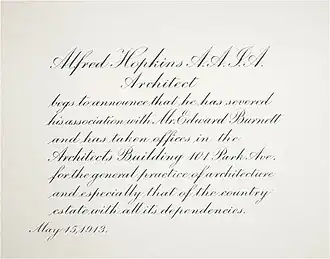 Alfred Hopkins A.A.I.A.
Architect
begs to announce that he has severed
his association with Mr. Edward Burnett
and has taken offices in the
Architects Building 101 Park Ave.
for the general practice of architecture
and especially that of the country
estate with all its dependencies.
May 15, 1913.